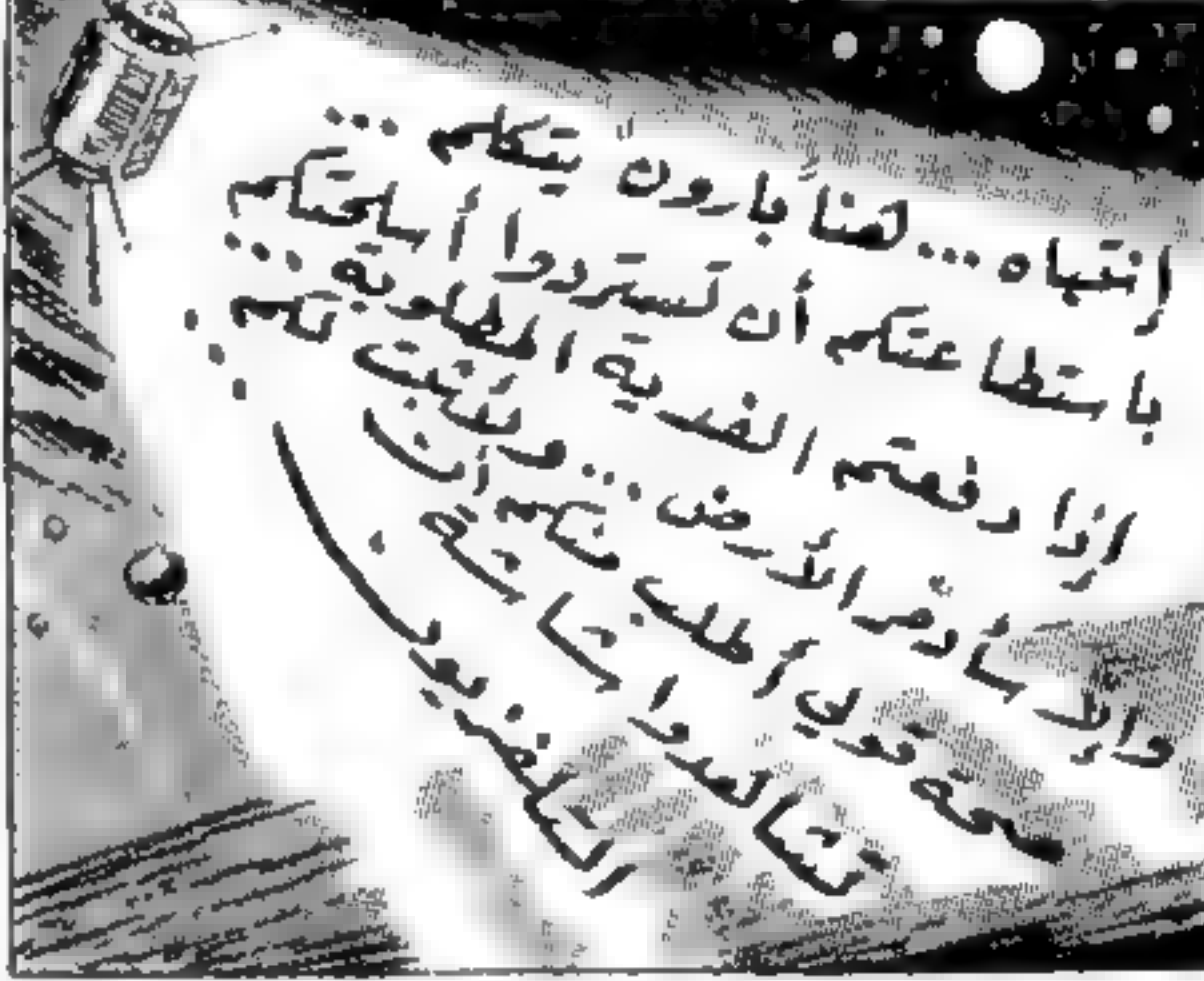 إنتباه... هنا بارون يتكلم...
باستطاعتكم أن تستردوا أسلحتكم
إذا دفعتم الفدية المطلوبة...
وإلا سأدمّر الأرض... ولأثبت لكم
صحة قولي أطلب منكم أن
تشاهدوا شاشة
التلفزيون